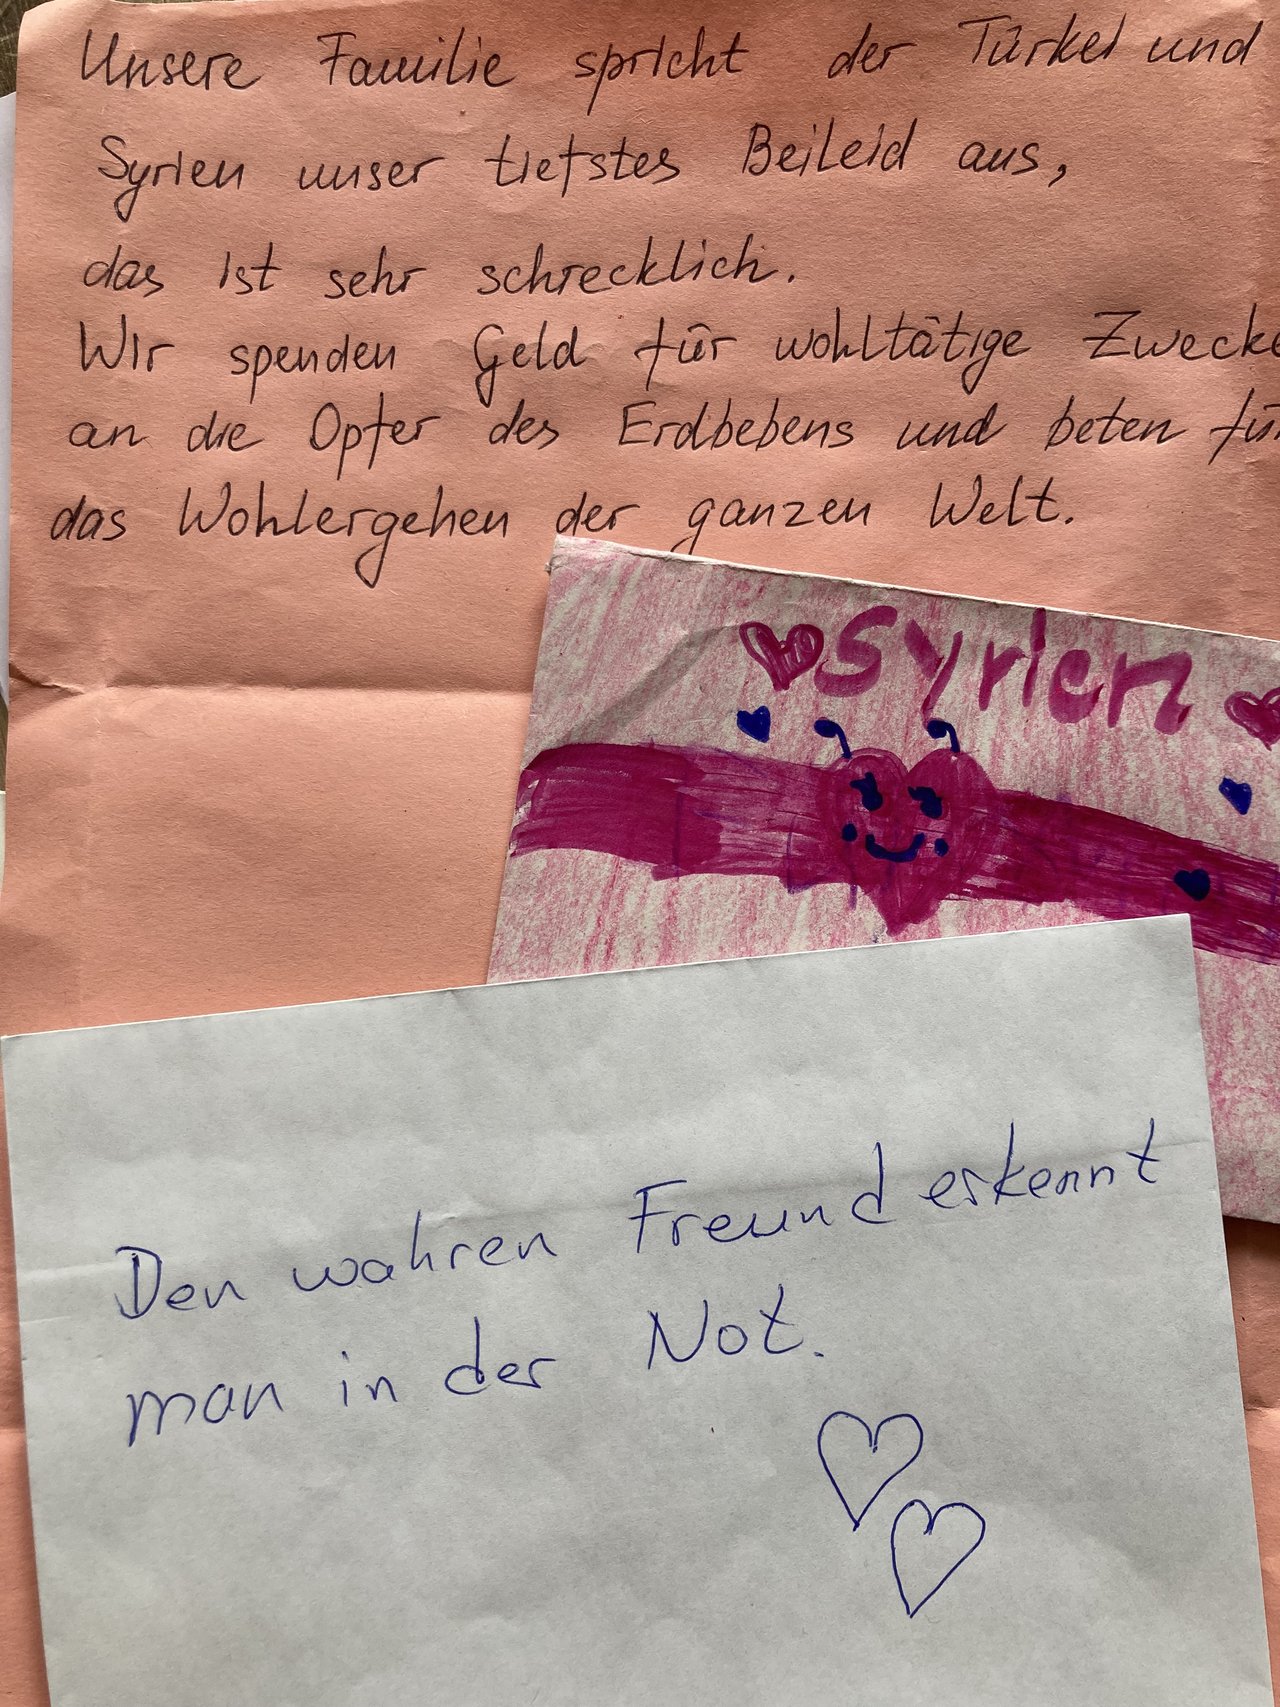 Unsere Familie spricht der Türkei und
Syrien unser tiefstes Beileid aus,
das ist sehr schrecklich.
Wir spenden Geld für wohltätige Zwecke
an die Opfer des Erdbebens und beten für
das Wohlergehen der ganzen Welt.
Syrien
Den wahren Freund erkennt
man in der Not.